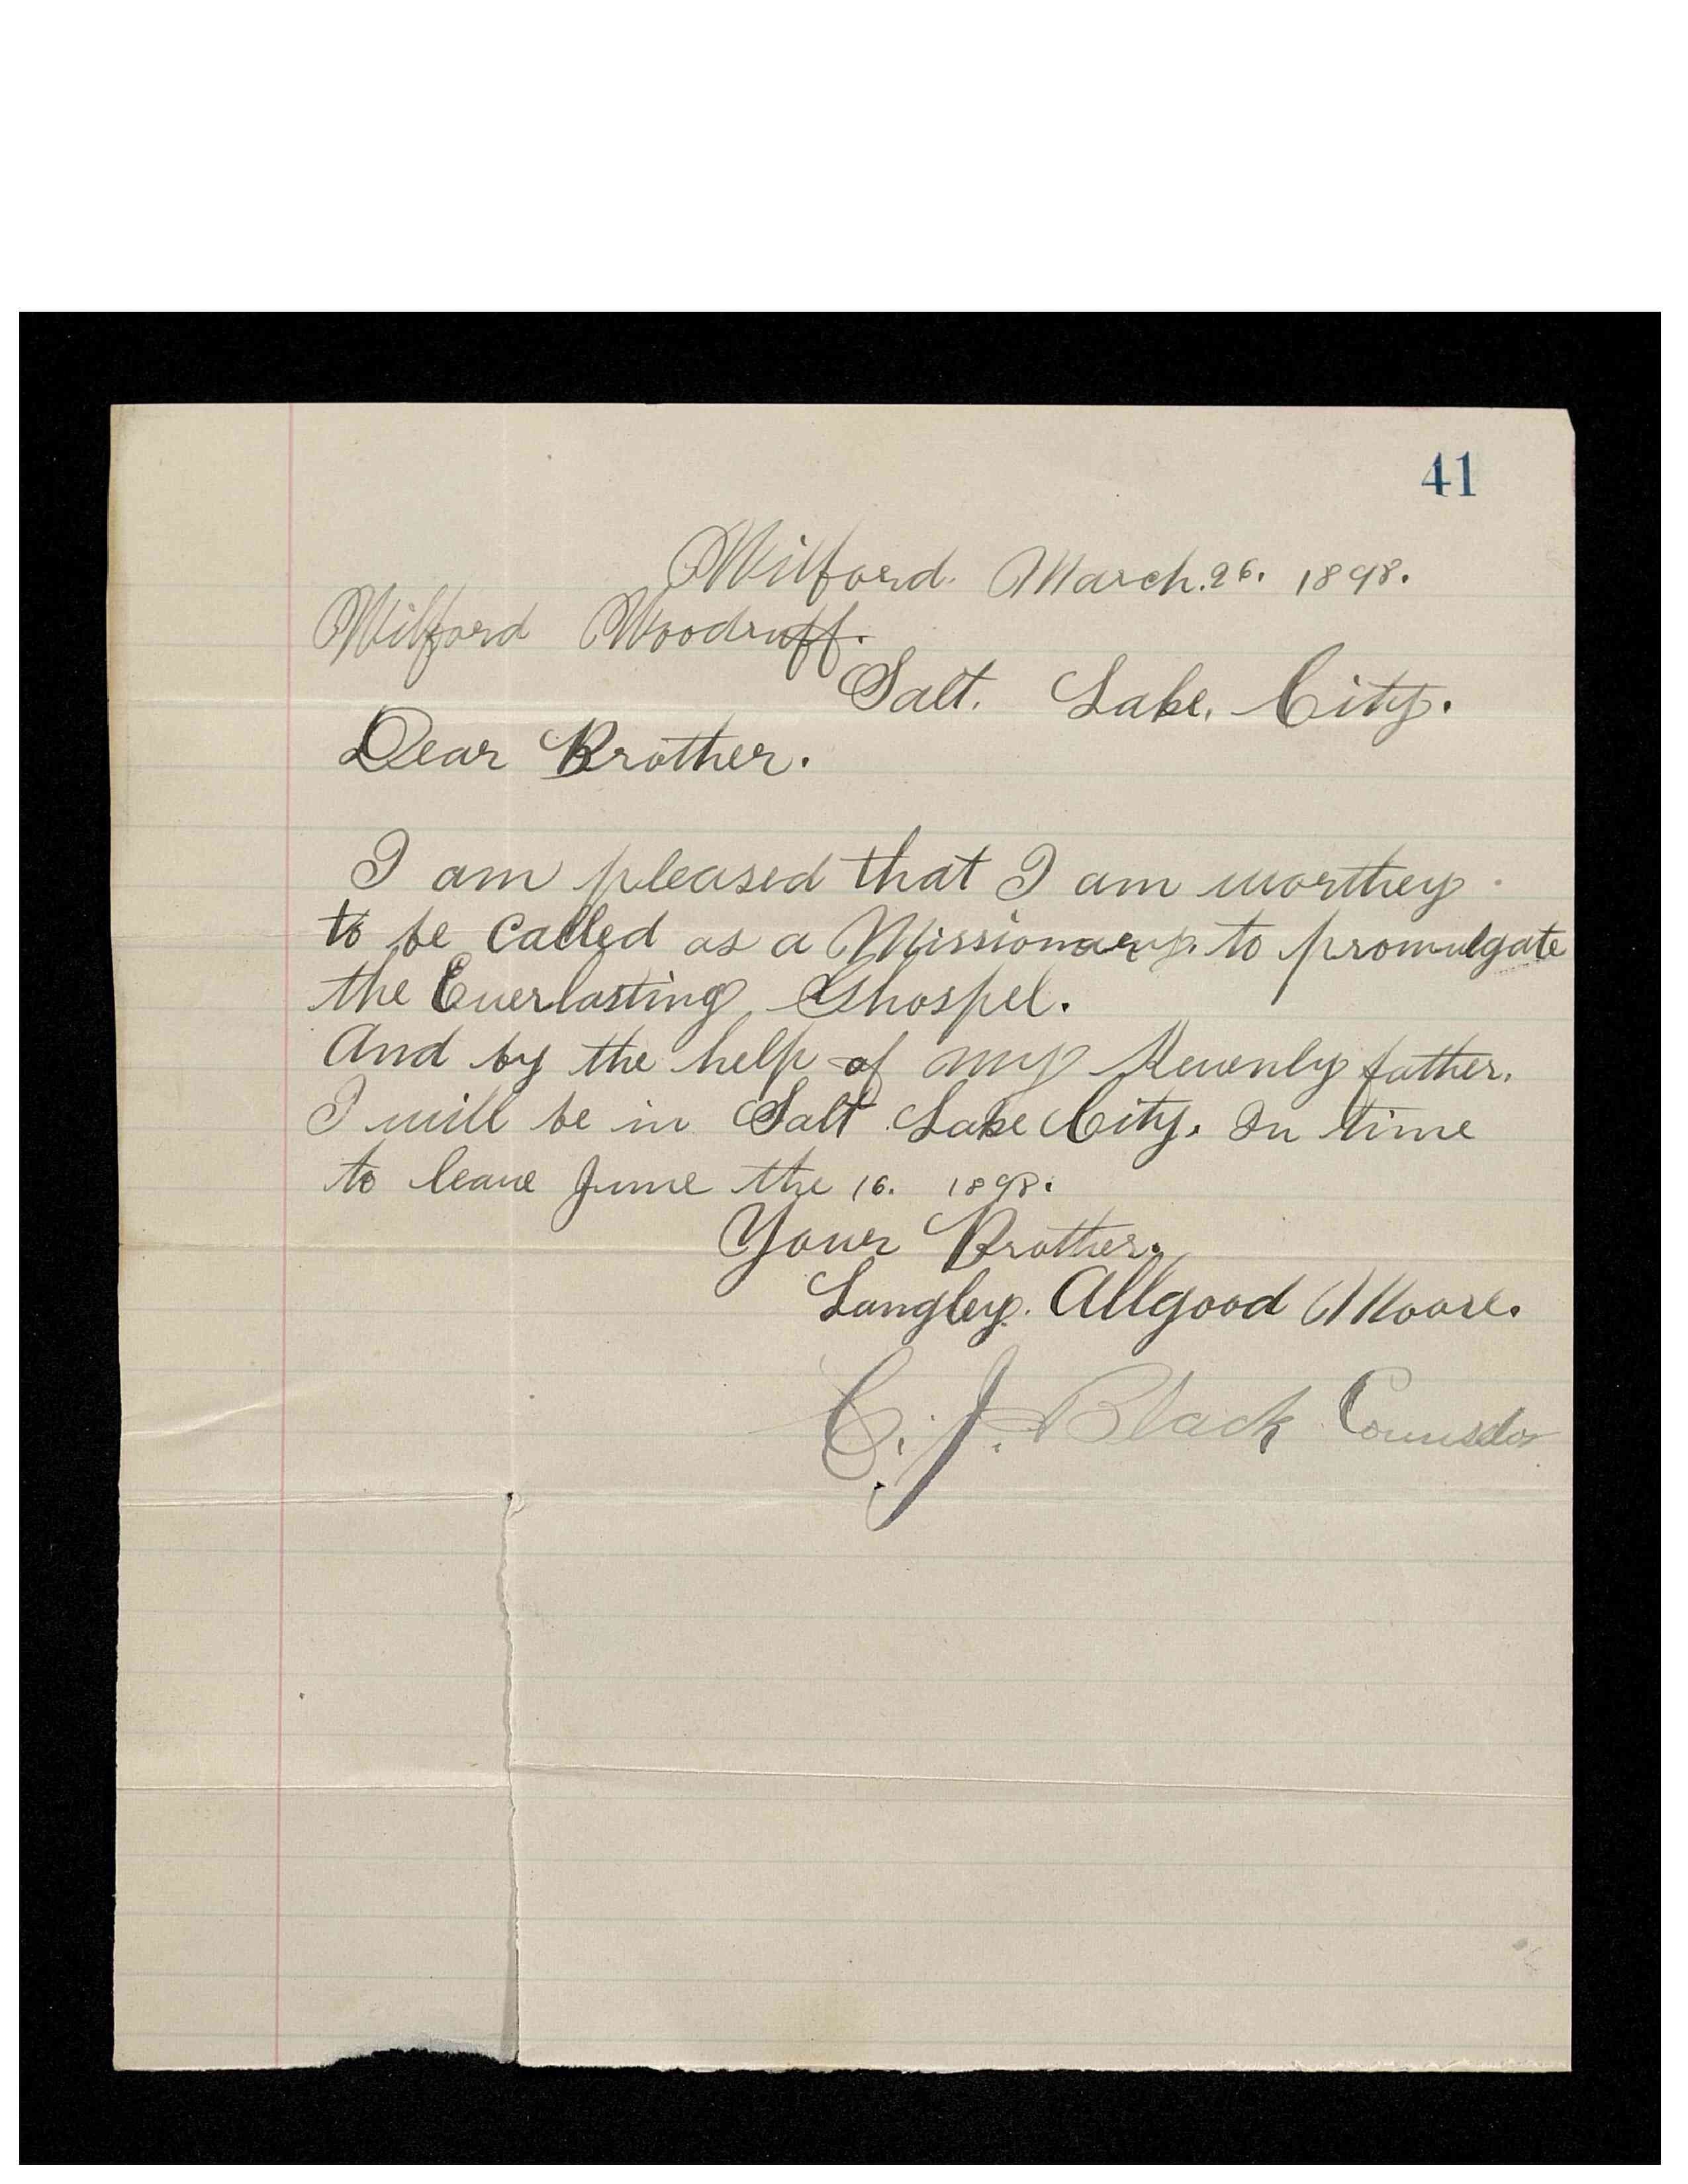 41
Wilford. March. 26. 1898.
Wilford Woodruff.
Salt. Lake. City.
Dear Brother.
I am pleased that I am worthey
to be called as a Missionary. to promulgate
the Everlasting Ghospel.
And by the help of my Hevenly father.
I will be in Salt Lake City. In time
to leave June the 16. 1898.
Your Brother.
Langley. Allgood Moore.
C. J. Black Counselor